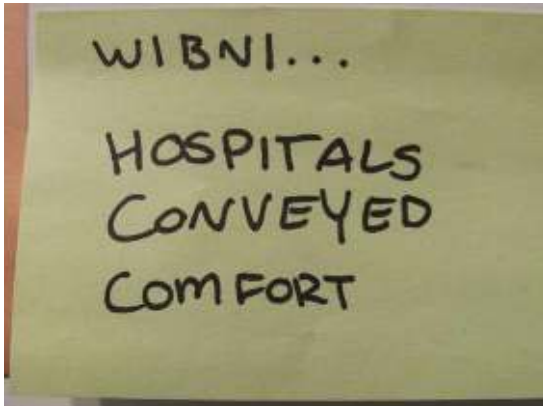 WIBNI...
HOSPITALS
CONVEYED
COMFORT